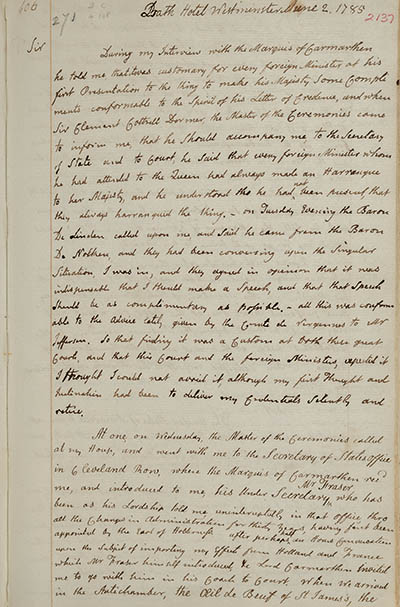 271
2137
Bath Hotel Westminster June 2. 1785
Sir
During my Interview with the Marquis of Carmarthen
he told me that it was customary for every foreign Minister at his
first Presentation to the King to make his Majesty Some Comple
ments conformable to the Spirit of his Letter of Credence, and when
Sir Clement Cottrell Dormer, the Master of the Ceremonies came
to inform me, that he Should accompany me to the Secretary
of State and to Court, he Said that every foreign Minister whom
he had attended to the Queen had always made an Harrangue
to her Majesty, and he understood tho he had not been present, that
they always harrangued the King. — on Tuesday Evening the Baron
De Linden called upon me and Said he came from the Baron
De Nolken, and they had been conversing upon the Singular
Situation, I was in, and they agreed in opinion that it was
indispensable that I Should make a Speech, and that that Speech
Should be as complimentary as possible. — all this was conform
able to the Advice lately given by the Comte de Vergennes to Mr
Jefferson. So that finding it was a Custom at both these great
Courts, and that this Court and the foreign Ministers, expected it
I thought I could not avoid it although my first Thought and
Inclination had been to deliver my Credentials Silently and
retire.
At one, on Wednesday, the Master of the Ceremonies called
at my House, and went with me to the Secretary of States office
in Cleveland Row, where the Marquis of Carmarthen recd
me, and introduced to me, his Under Secretary, Mr Frasier who has
been as his Lordship told me uninterruptedly in that Office thro
all the Changes in Administration for thirty Years, having first been
appointed by the Earl of Holderness after a short Conversation
upon the Subject of importing my Effects from Holland and France
which Mr Frasier himself introduced, Lord Carmarthen invited
me to go with him in his Coach to Court. When we arrived
in the Antichamber, the Œil de Bœuf of St James's, the